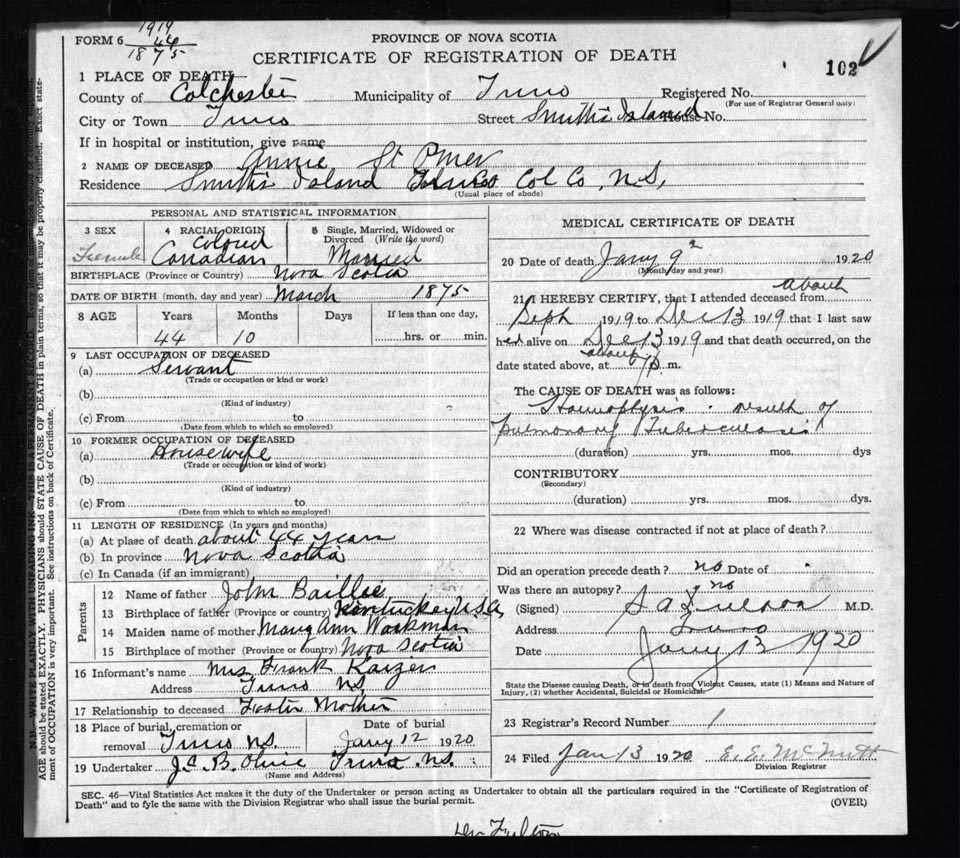 1919
44
1875
FORM 6
PROVINCE OF NOVA SCOTIA
CERTIFICATE OF REGISTRATION OF DEATH
102
1 PLACE OF DEATH
County of Colchester Municipality of Truro Registered No.
(For use of Registrar General only)
City or Town Truro Street Smith's Island House No.
If in hospital or institution, give name
2 NAME OF DECEASED Annie St
Residence Smith's Island Truro Col Co, N.S,
(Usual place of abode)
PERSONAL AND STATISTICAL INFORMATION
3 SEX Female
4 RACIAL ORIGIN Colored Canadian
5 Single, Married, Widowed or Divorced (Write the word) Married
BIRTHPLACE (Province or Country) Nova Scotia
DATE OF BIRTH (month, day and year) March 1875
8 AGE Years Months Days If less than one day,
44 10 hrs. or min.
9 LAST OCCUPATION OF DECEASED
(a) Servant
(Trade or occupation or kind or work)
(b)
(Kind of industry)
(c) From to
(Date from which to which so employed)
10 FORMER OCCUPATION OF DECEASED
(a) Housewife
(Trade or occupation or kind or work)
(b)
(Kind of industry)
(c) From to
(Date from which to which so employed)
11 LENGTH OF RESIDENCE (In years and months)
(a) At place of death about 44 years
(b) In province Nova Scotia
(c) In Canada (if an immigrant)
Parents
12 Name of father John Baillie
13 Birthplace of father (Province or country) Kentucky U.S.A,
14 Maiden name of mother Mary Ann Workman
15 Birthplace of mother (Province or country) Nova Scotia
16 Informant's name Mrs Frank Kaizer
Address Truro N.S.
17 Relationship to deceased Foster Mother
18 Place of burial, cremation or removal Truro N.S. Date of burial Jany 12 1920
19 Undertaker J.C.B. Olive Truro N.S.
(Name and Address)
MEDICAL CERTIFICATE OF DEATH
20 Date of death Jany 9 1920
(Month, day and year)
21 I HEREBY CERTIFY, that I attended deceased from about
Sept 1919 to Dec 13 1919 that I last saw
her alive on Dec 13 1919 and that death occurred, on the
date stated above, at about 6 p. m.
The CAUSE OF DEATH was as follows:
Haemoptysis . result of
pulmonary Tuberculosis
(duration) yrs. mos. dys
CONTRIBUTORY
(Secondary)
(duration) yrs. mos. dys.
22 Where was disease contracted if not at place of death?
Did an operation precede death? no Date of
Was there an autopsy? no
(Signed) S A Fulton M.D.
Address Truro
Date Jany 13 1920
State the Disease causing Death, or in death from Violent Causes, state (1) Means and Nature of
Injury, (2) whether Accidental, Suicidal or Homicidal.
23 Registrar's Record Number 1
24 Filed Jan 13 1920 E. E. McNutt
Division Registrar
SEC. 46—Vital Statistics Act makes it the duty of the Undertaker or person acting as Undertaker to obtain all the particulars required in the "Certificate of Registration of
Death" and to fyle the same with the Division Registrar who shall issue the burial permit.
(OVER)
Dr Fulton
AGE should be stated EXACTLY. PHYSICIANS should STATE CAUSE OF DEATH in plain terms, so that it may be properly classified. Exact state-
ment of OCCUPATION is very important. See instructions on back of Certificate.